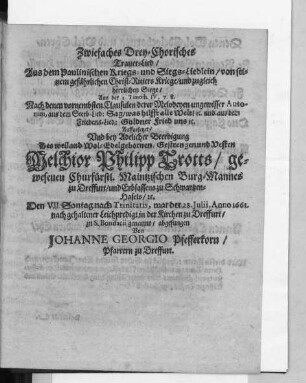 Zwiefaches Drey-Chorisches
Trauer-Lied/
Aus dem Paulinischen Kriegs- und Siegs-Liedlein/ von seinem
gefährlichen Christ-Ritters Kriege/ und zugleich
herrlichen Siege/
Aus der 2. Timoth. IV, 7. 8.
Nach denen vornembsten Clausulen derer Melodeyen ungewisser Autorum,
aus dem Sterb-Lied: Sag/ was hilfft alle Welt/ ꝛc. und aus dem
Friedens-Lied: Güldener Fried uns ꝛc.
Auffgesetzet/
Und bey Adelicher Beerdigung
Des weiland Wol-Edelgebornen/ Gestrengen und Vesten
Melchior Philipp Trotts/ gewesenen
Churfürstl. Mäintzischen Burg-Mannes
zu Treffurt/ und Erbsassens zu Schwartzen-
Hasela/ ꝛc.
Den VII. Sontag nach Trinitatis, war der 28. Julii, Anno 1661.
nach gehaltener Leichpredigt in der Kirchen zu Treffurt/
zu S. Bonifacii genannt/ abgesungen
Von
JOHANNE GEORGIO Pfefferkorn/
Pfarrern zu Treffurt.